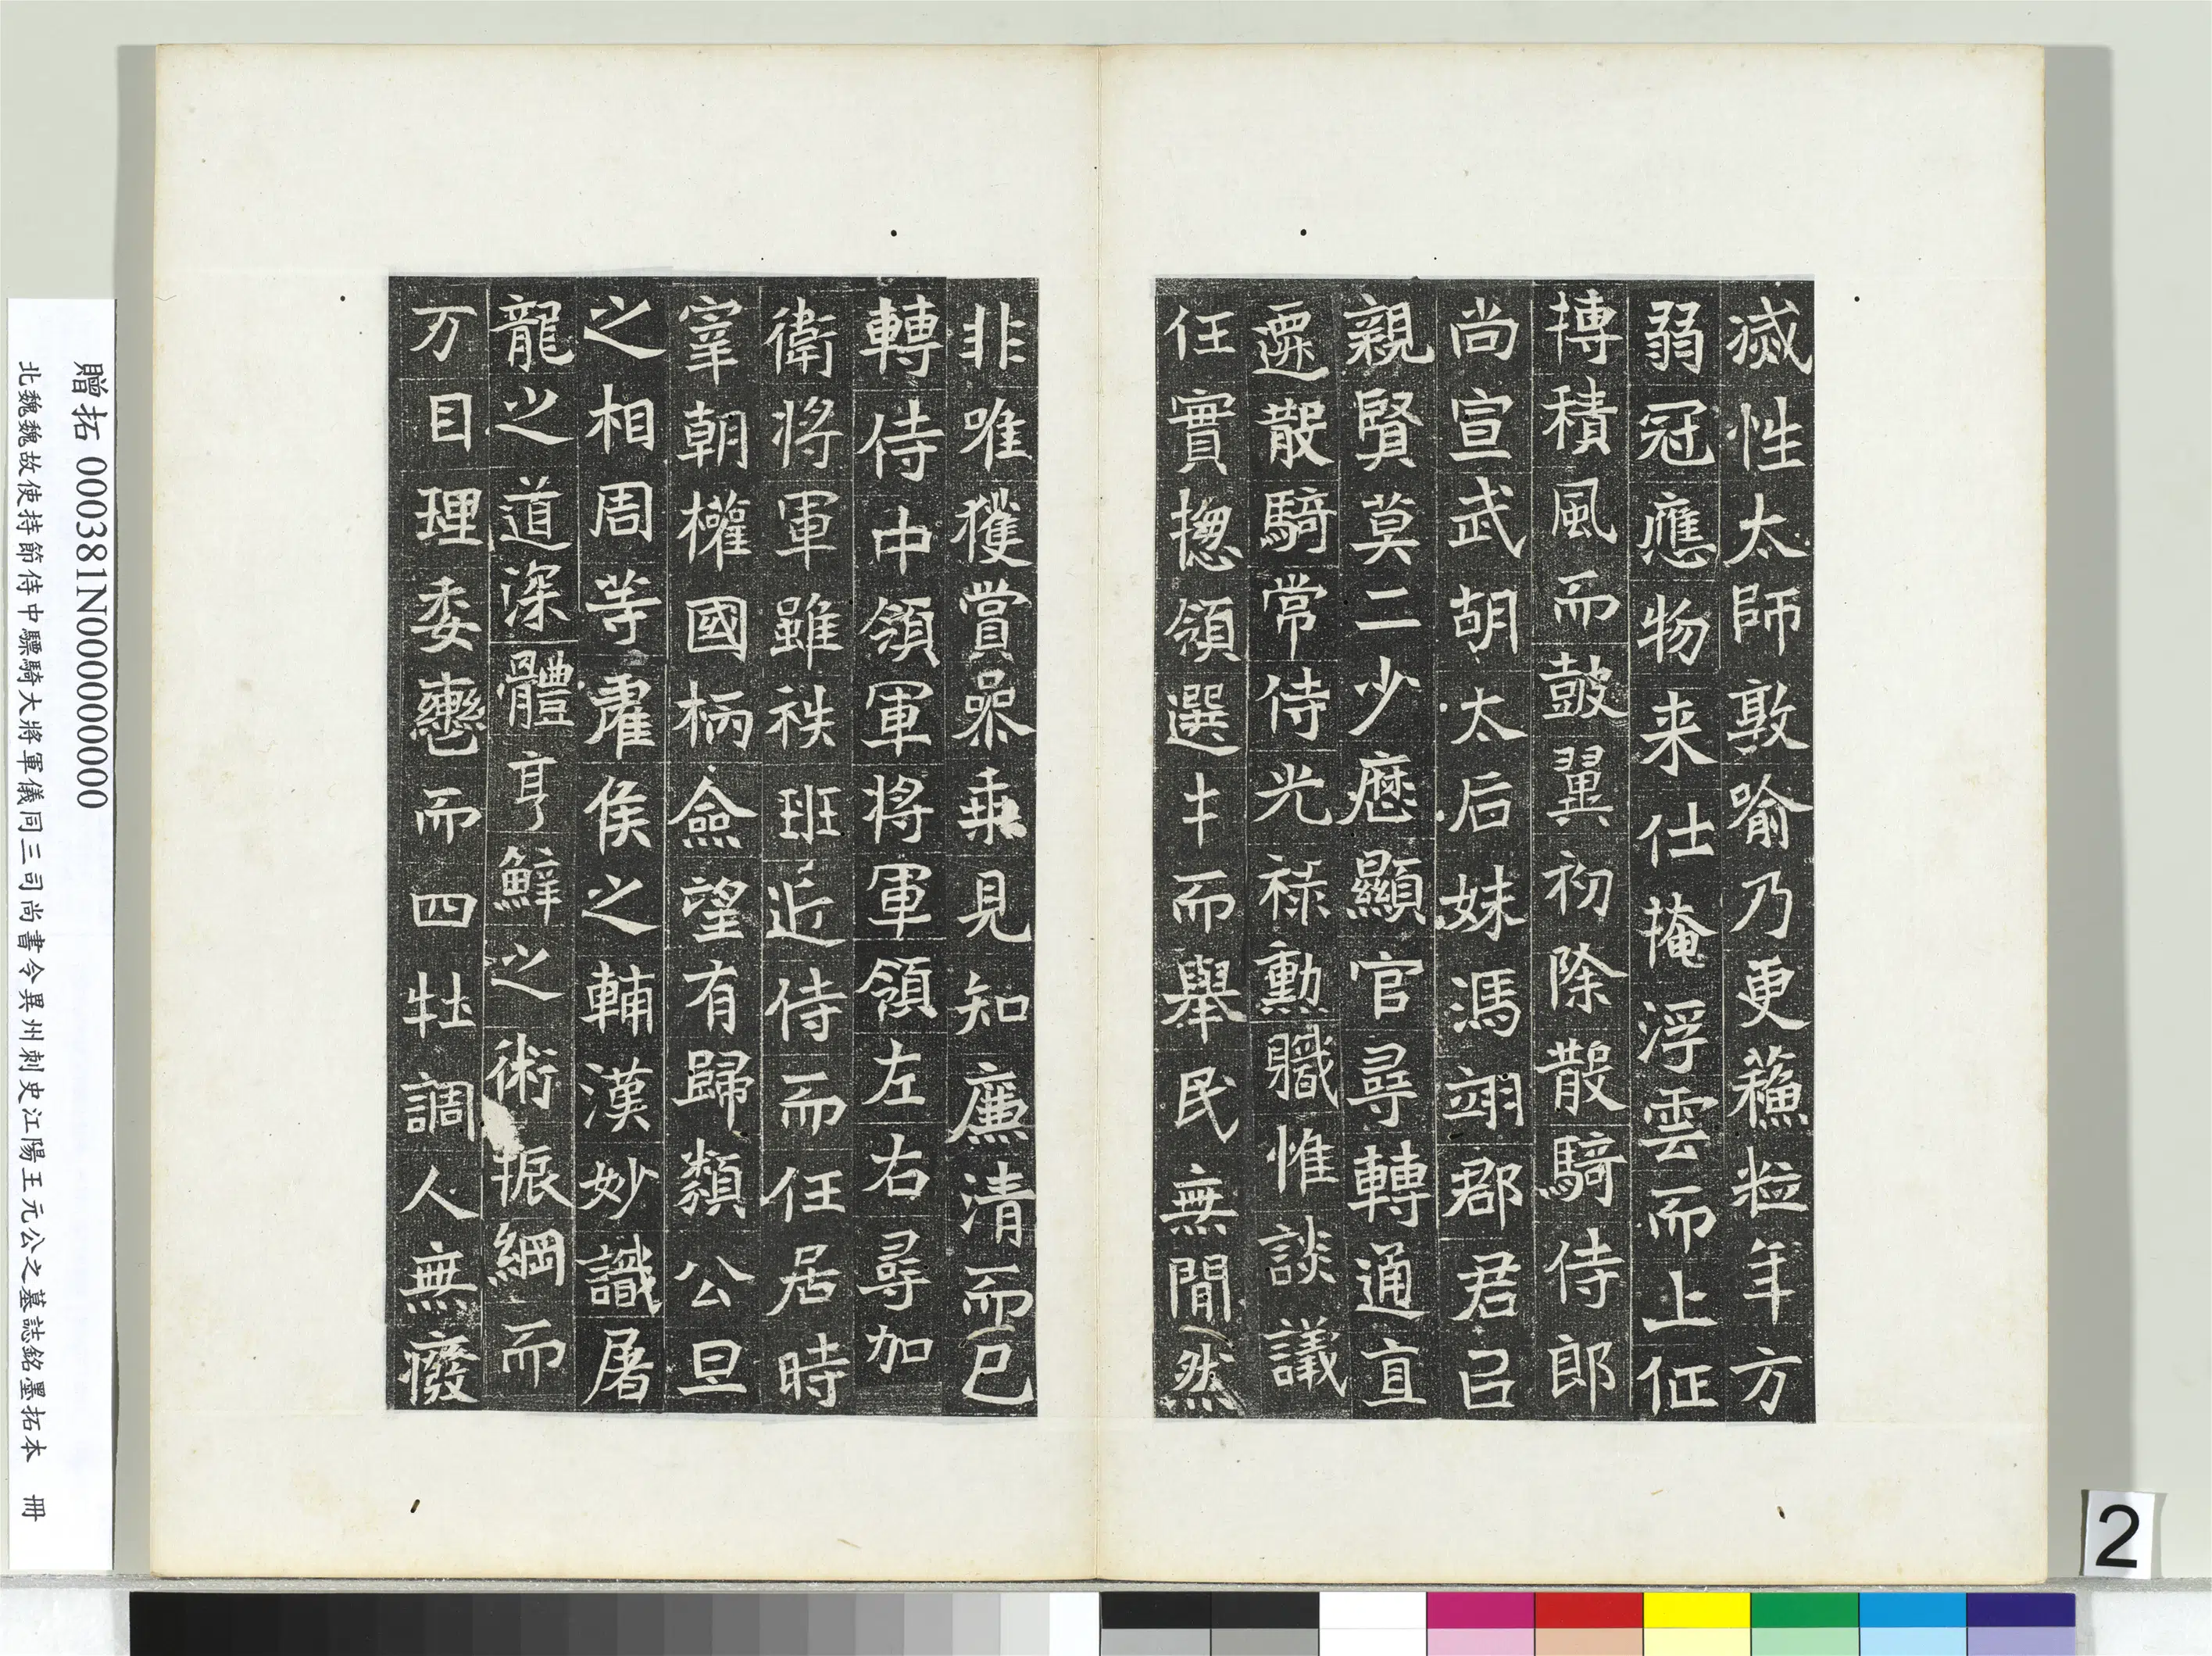 滅性太師敦喻乃更蘓粒年方
弱冠應物来仕掩浮雲而上征
摶積風而鼓翼初除散騎侍郎
尚宣武胡太后妹馮翊郡君㠯
親賢莫二少歷顯官尋轉通直
遷散騎常侍光祿勳職惟談議
任實揔領選才而舉民無閒然
非唯獲賞喿乗見知廉清而已
轉侍中領軍將軍領左右尋加
衛將軍雖秩班近侍而任居時
宰朝權國柄僉望有歸類公旦
之相周等霍侯之輔漢妙識屠
龍之道深體亨鮮之術振綱而
万目理委轡而四牡調人無癈
贈拓 000381N000000000
北魏魏故使持節侍中驃騎大將軍儀同三司尚書令異州刺史江陽王元公之墓誌銘墨拓本 冊
2